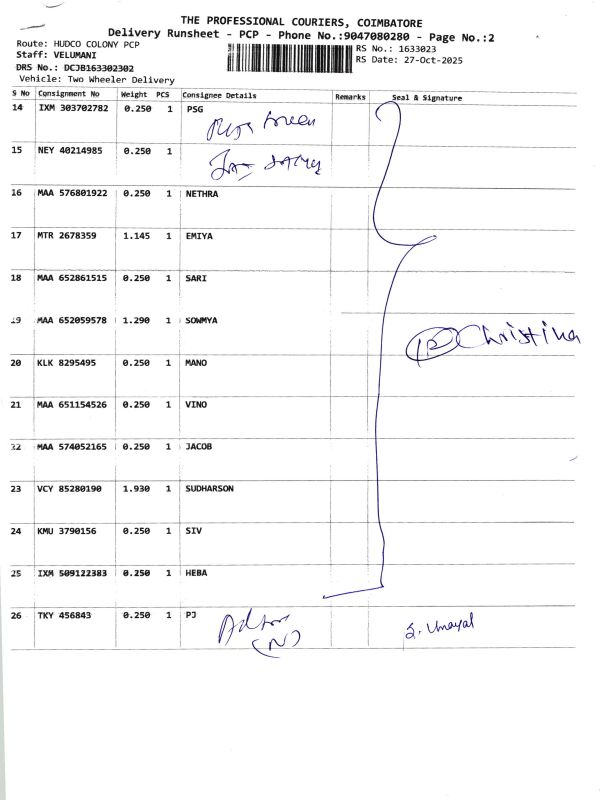 THE PROFESSIONAL COURIERS, COIMBATORE
Delivery Runsheet - PCP - Phone No.:9047080280 - Page No.:2
Route: HUDCO COLONY PCP
Staff: VELUMANI
DRS No.: DCJB163302302
Vehicle: Two Wheeler Delivery
RS No.: 1633023
RS Date: 27-Oct-2025
S No Consignment No Weight PCS Consignee Details Remarks Seal & Signature
14 IXM 303702782 0.250 1 PSG
15 NEY 40214985 0.250 1
16 MAA 576801922 0.250 1 NETHRA
17 MTR 2678359 1.145 1 EMIYA
18 MAA 652861515 0.250 1 SARI
19 MAA 652059578 1.290 1 SOWMYA
Christina
20 KLK 8295495 0.250 1 MANO
21 MAA 651154526 0.250 1 VINO
22 MAA 574052165 0.250 1 JACOB
23 VCY 85280190 1.930 1 SUDHARSON
24 KMU 3790156 0.250 1 SIV
25 IXM 509122383 0.250 1 HEBA
26 TKY 456843 0.250 1 PJ
(N)
S. Umayal